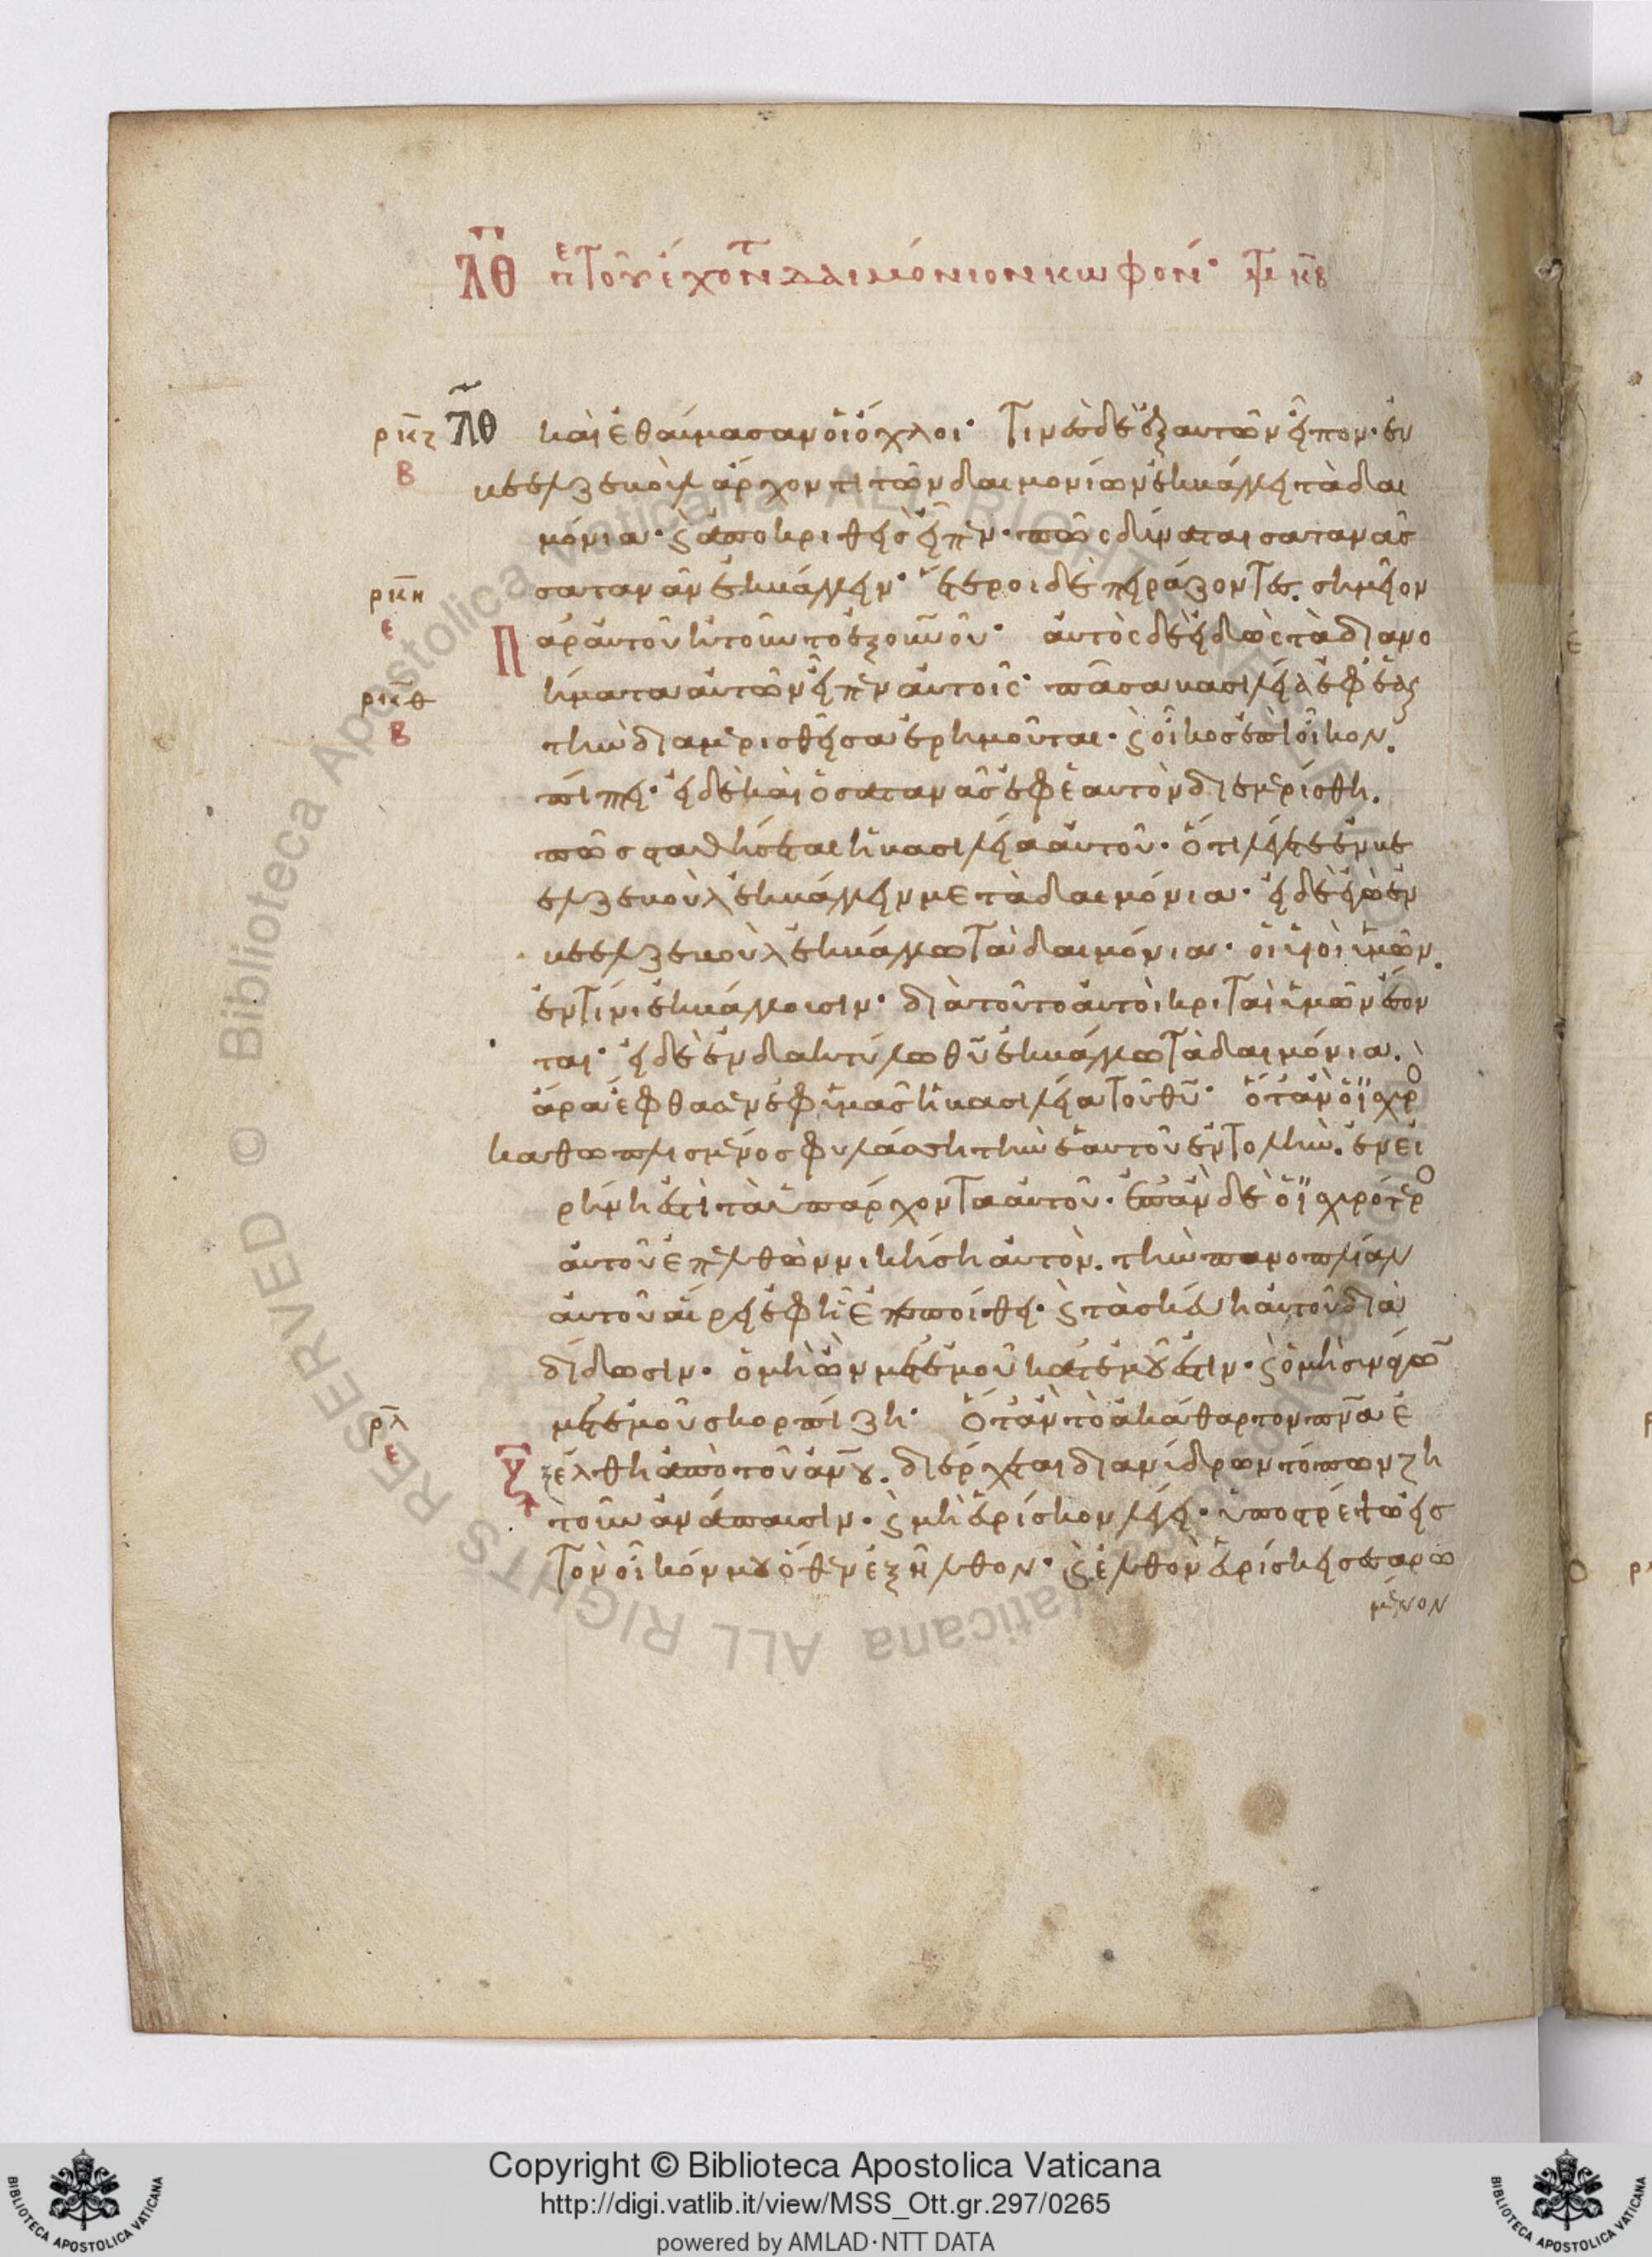 ΛΘ περὶ τοῦ ἔχοντ δαιμόνιον κωφόν· Μτ κβ
ρκζ ΛΘ καὶ ἐθαύμασαν οἱ ὄχλοι· Τινὲς δὲ ἐξ αυτῶν εἶπον· ἐν
Β βεελζεβοὺλ ἄρχοντι τῶν δαιμονίων ἐκβάλλει τὰ δαι
μόνια· ϗ ἀποκριθεὶς εἶπεν· πῶς δύναται σατανᾶς
ρκη σατανᾶν ἐκβάλλειν· ἕτεροι δὲ πειράζοντες. σημεῖον
ε Παρ αυτοῦ ἐζήτουν τὸ ἐξ οὐνοῦ· αὐτὸς δὲ εἰδὼς τὰ διανο
ρκθ ήματα αὐτῶν εἶπεν αὐτοῖς· πᾶσα βασιλεία ἐφ ἑαυ
Β τὴν διαμερισθεῖσα ἐρημοῦται· ϗ οἶκος ἐπὶ οἶκον.
πίπτει· εἰ δὲ καὶ ὁ σατανᾶς ἐφ ἑαυτὸν διεμερίσθη.
πῶς σταθήσεται ἡ βασιλεία αὐτοῦ· ὅτι λέγετε ἐν βε
ελζεβοὺλ ἐκβάλλειν με τὰ δαιμόνια· εἰ δὲ ἐγὼ ἐν
βεελζεβοὺλ ἐκβάλλω τὰ δαιμόνια· οἱ υἱοὶ ὑμῶν.
ἐν τίνι ἐκβάλλουσιν· διὰ τοῦτο αὐτοὶ κριταὶ ὑμῶν ἔσον
ται· εἰ δὲ ἐν δακτύλω θῦ ἐκβάλλω τὰ δαιμόνια.
ἄρα ἔφθασεν ἐφ ὑμᾶς ἡ βασιλεία τοῦ θῦ· ὅταν ὁ ἰσχυρὸ
καθωπλισμένος φυλάσση τὴν ἑαυτοῦ ἐντολὴν. ἐν εἰ
ρήνη ἐστὶ τὰ ὑπάρχοντα αὐτοῦ· ἐπὰν δὲ ὁ ἰσχυρότερο
αὐτοῦ ἐπελθὼν νικήση αὐτὸν. τὴν πανοπλίαν
αὐτοῦ αἴρει ἐφ ἧ ἐπεποίθει· ϗ τὰ σκῦλη αὐτοῦ δια
δίδωσιν· ὁ μὴ ὢν μετ ἐμοῦ κατ ἐμοῦ ἐστιν· ϗ ὁ μὴ συνάγω
ρλ μετ ἐμοῦ σκορπίζη· Ὅταν τὸ ἀκάθαρτον πνᾶ ἐ
ε ξέλθη ἀπὸ τοῦ ἀνου. διέρχεται δι ανύδρων τόπων ζη
τοῦν ἀνάπαυσιν· ϗ μὴ εὑρίσκον λέγει· ὑποστρέψω εἰς
τὸν οἶκόν μου ὅθεν ἐξῆλθον· ϗ ἐλθὸν εὑρίσκει σεσαρω
μένον
Copyright © Biblioteca Apostolica Vaticana
http://digi.vatlib.it/view/MSS_Ott.gr.297/0265
powered by AMLAD·NTT DATA
BIBLIOTECA APOSTOLICA VATICANA
BIBLIOTECA APOSTOLICA VATICANA